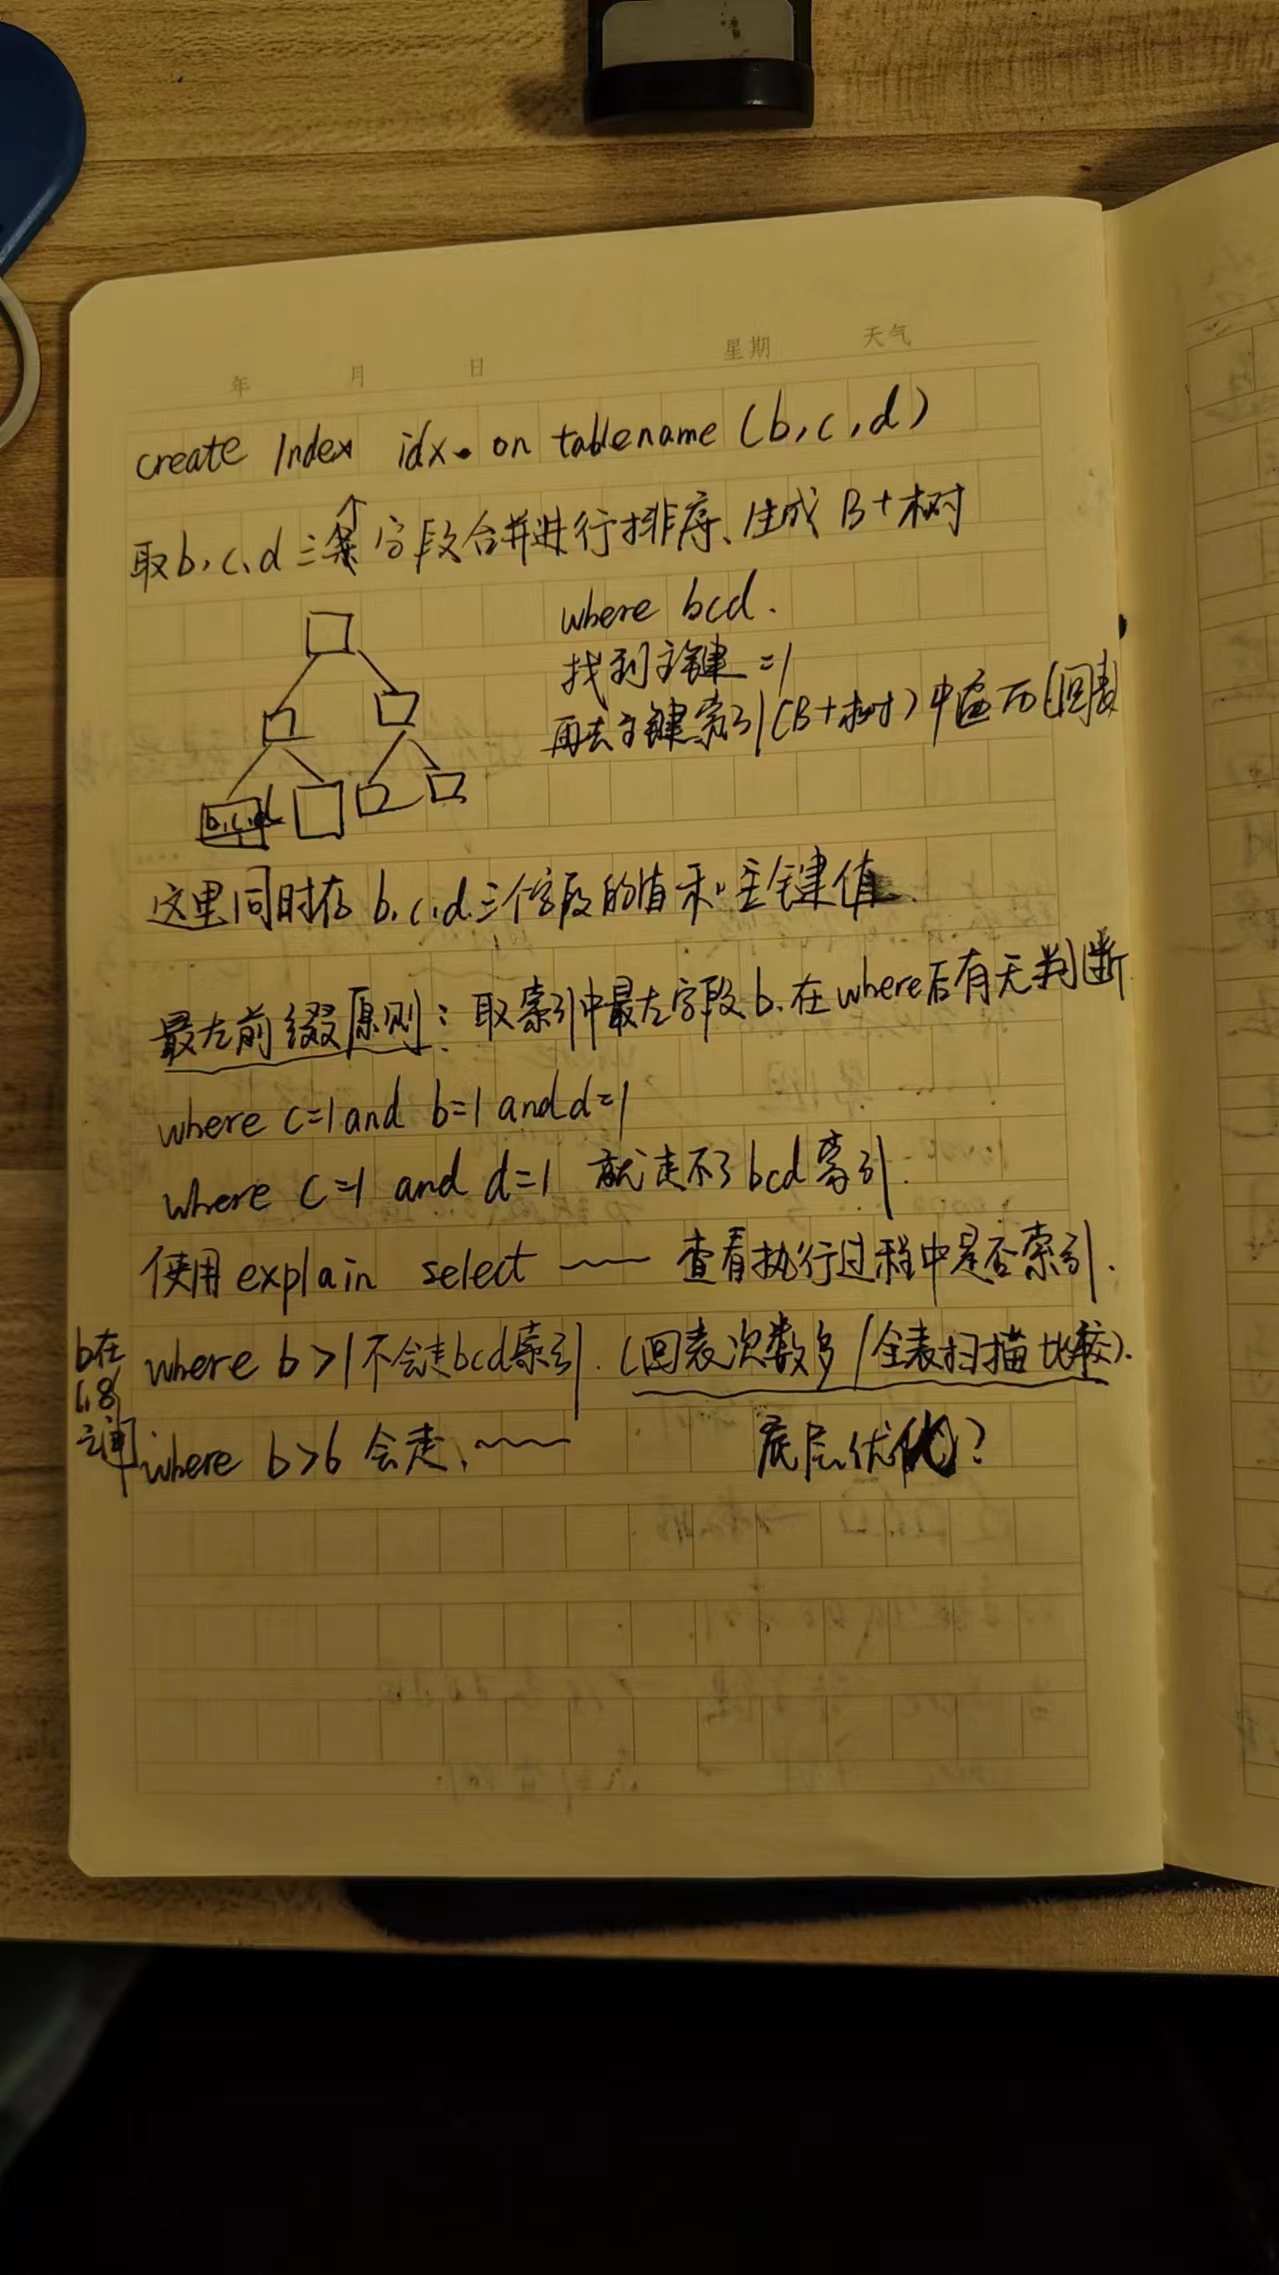 年 月 日 星期 天气
create Index idx. on tablename (b,c,d)
取b,c,d三个字段合并进行排序、生成B+树
where bcd.
找到主键=1
再去主键索引(B+树)中遍历(回表
b,c,d
这里同时存b,c,d三个字段的值和主键值
最左前缀原则:取索引中最左字段b.在where后有无判断
where c=1 and b=1 and d=1
where c=1 and d=1 就走不了bcd索引.
使用explain select —— 查看执行过程中是否索引.
where b>1不会走bcd索引.(回表次数多/全表扫描比较).
b在
1,8
之间
where b>6 会走、~~~ 底层优化?